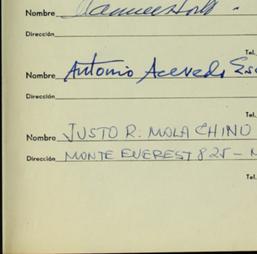 Nombre
Dirección
Tel.
Nombre Antonio Acevedo
Dirección
Tel.
Nombre JUSTO R. MOLA CHINO
Dirección MONTE EVEREST 825 –
Tel.